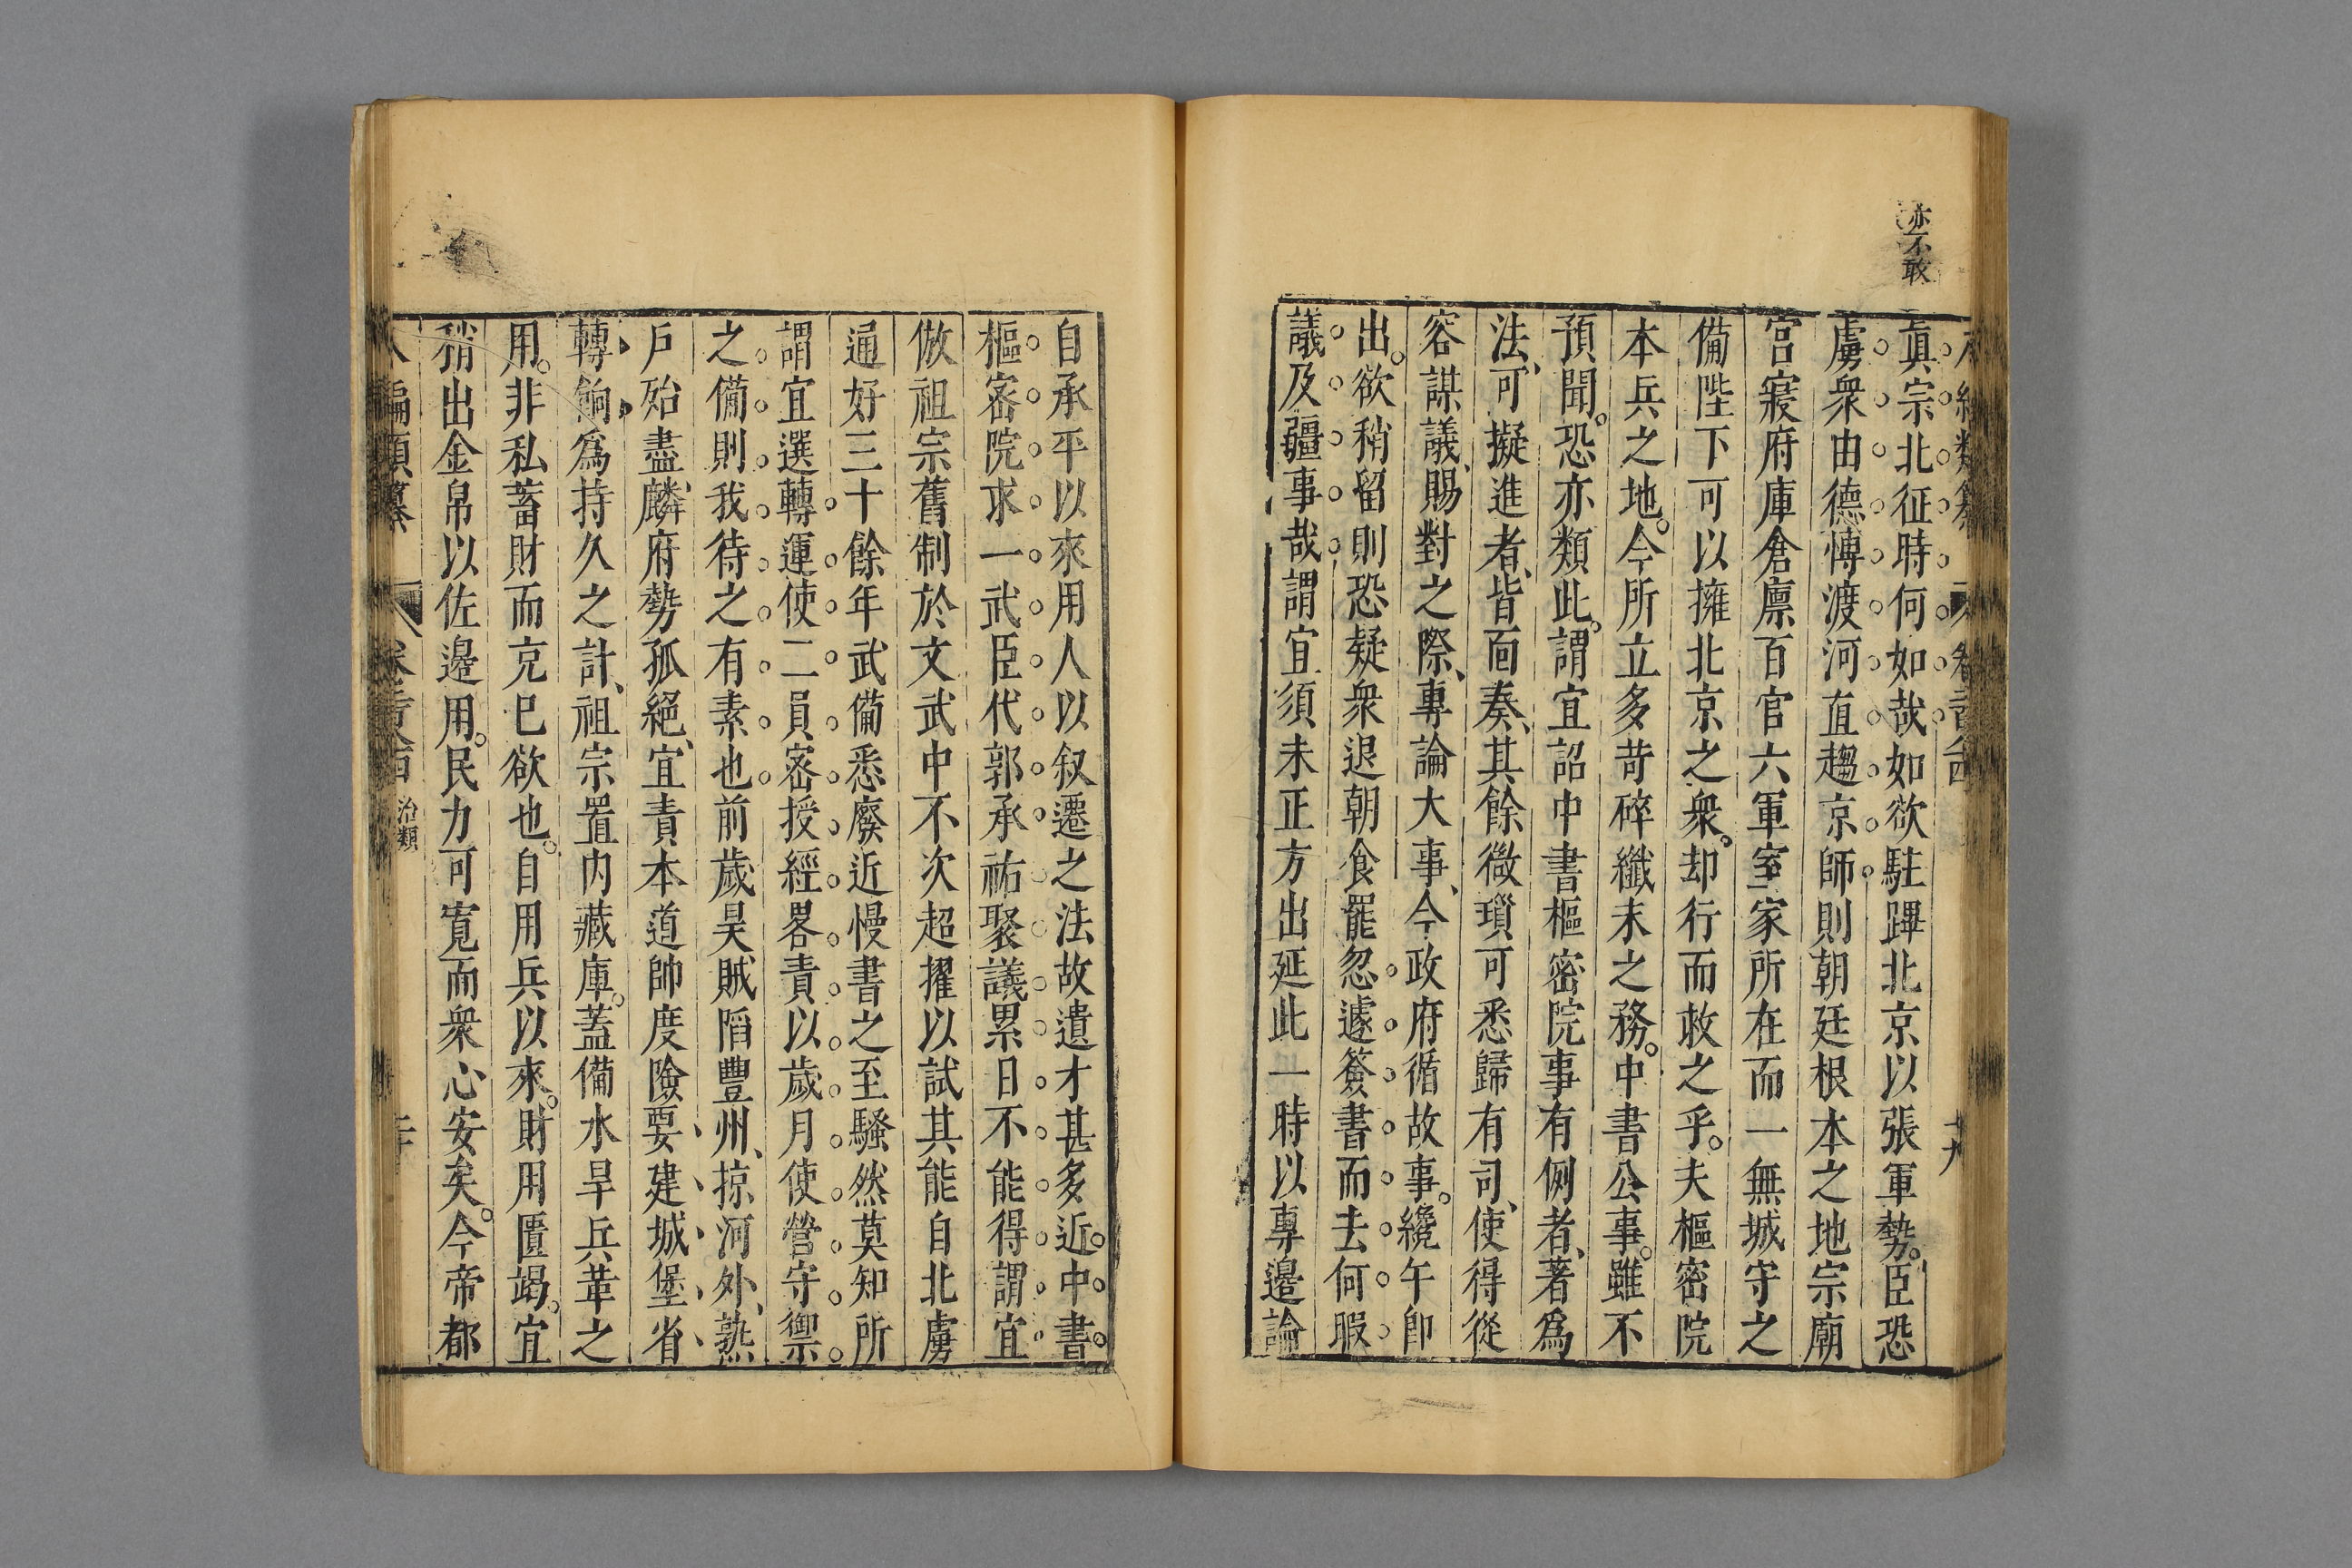 亦不敢
眞宗北征時何如哉如欲駐蹕北京以張軍勢臣恐
虜衆由德博渡河直趨京師則朝廷根本之地宗廟
宮寢府庫倉廪百官六軍室家所在而一無城守之
備陛下可以擁北京之衆却行而救之乎夫樞密院
本兵之地今所立多苛碎纖末之務中書公事雖不
預聞恐亦類此謂宜詔中書樞密院事有例者著爲
法可擬進者皆面奏其餘微瑣可悉歸有司使得從
容謀議賜對之際專論大事今政府循故事纔午卽
出欲稍留則恐疑衆退朝食罷忽遽簽書而去何暇
議及疆事哉謂宜須未正方出延此一時以專邊論
自承平以來用人以叙遷之法故遺才甚多近中書
樞密院求一武臣代郭承祐聚議累日不能得謂宜
倣祖宗舊制於文武中不次超擢以試其能自北虜
通好三十餘年武備悉廢近慢書之至騷然莫知所
謂宜選轉運使二員密授經畧責以歲月使營守禦
之備則我待之有素也前歲昊賊陷豐州掠河外熟
戶殆盡麟府勢孤絕宜責本道帥度險要建城堡省
轉餉爲持久之計祖宗置内藏庫蓋備水旱兵革之
用非私蓄財而充巳欲也自用兵以來財用匱竭宜
稍出金帛以佐邊用民力可寬而衆心安矣今帝都
八編類纂 卷 治類 二十